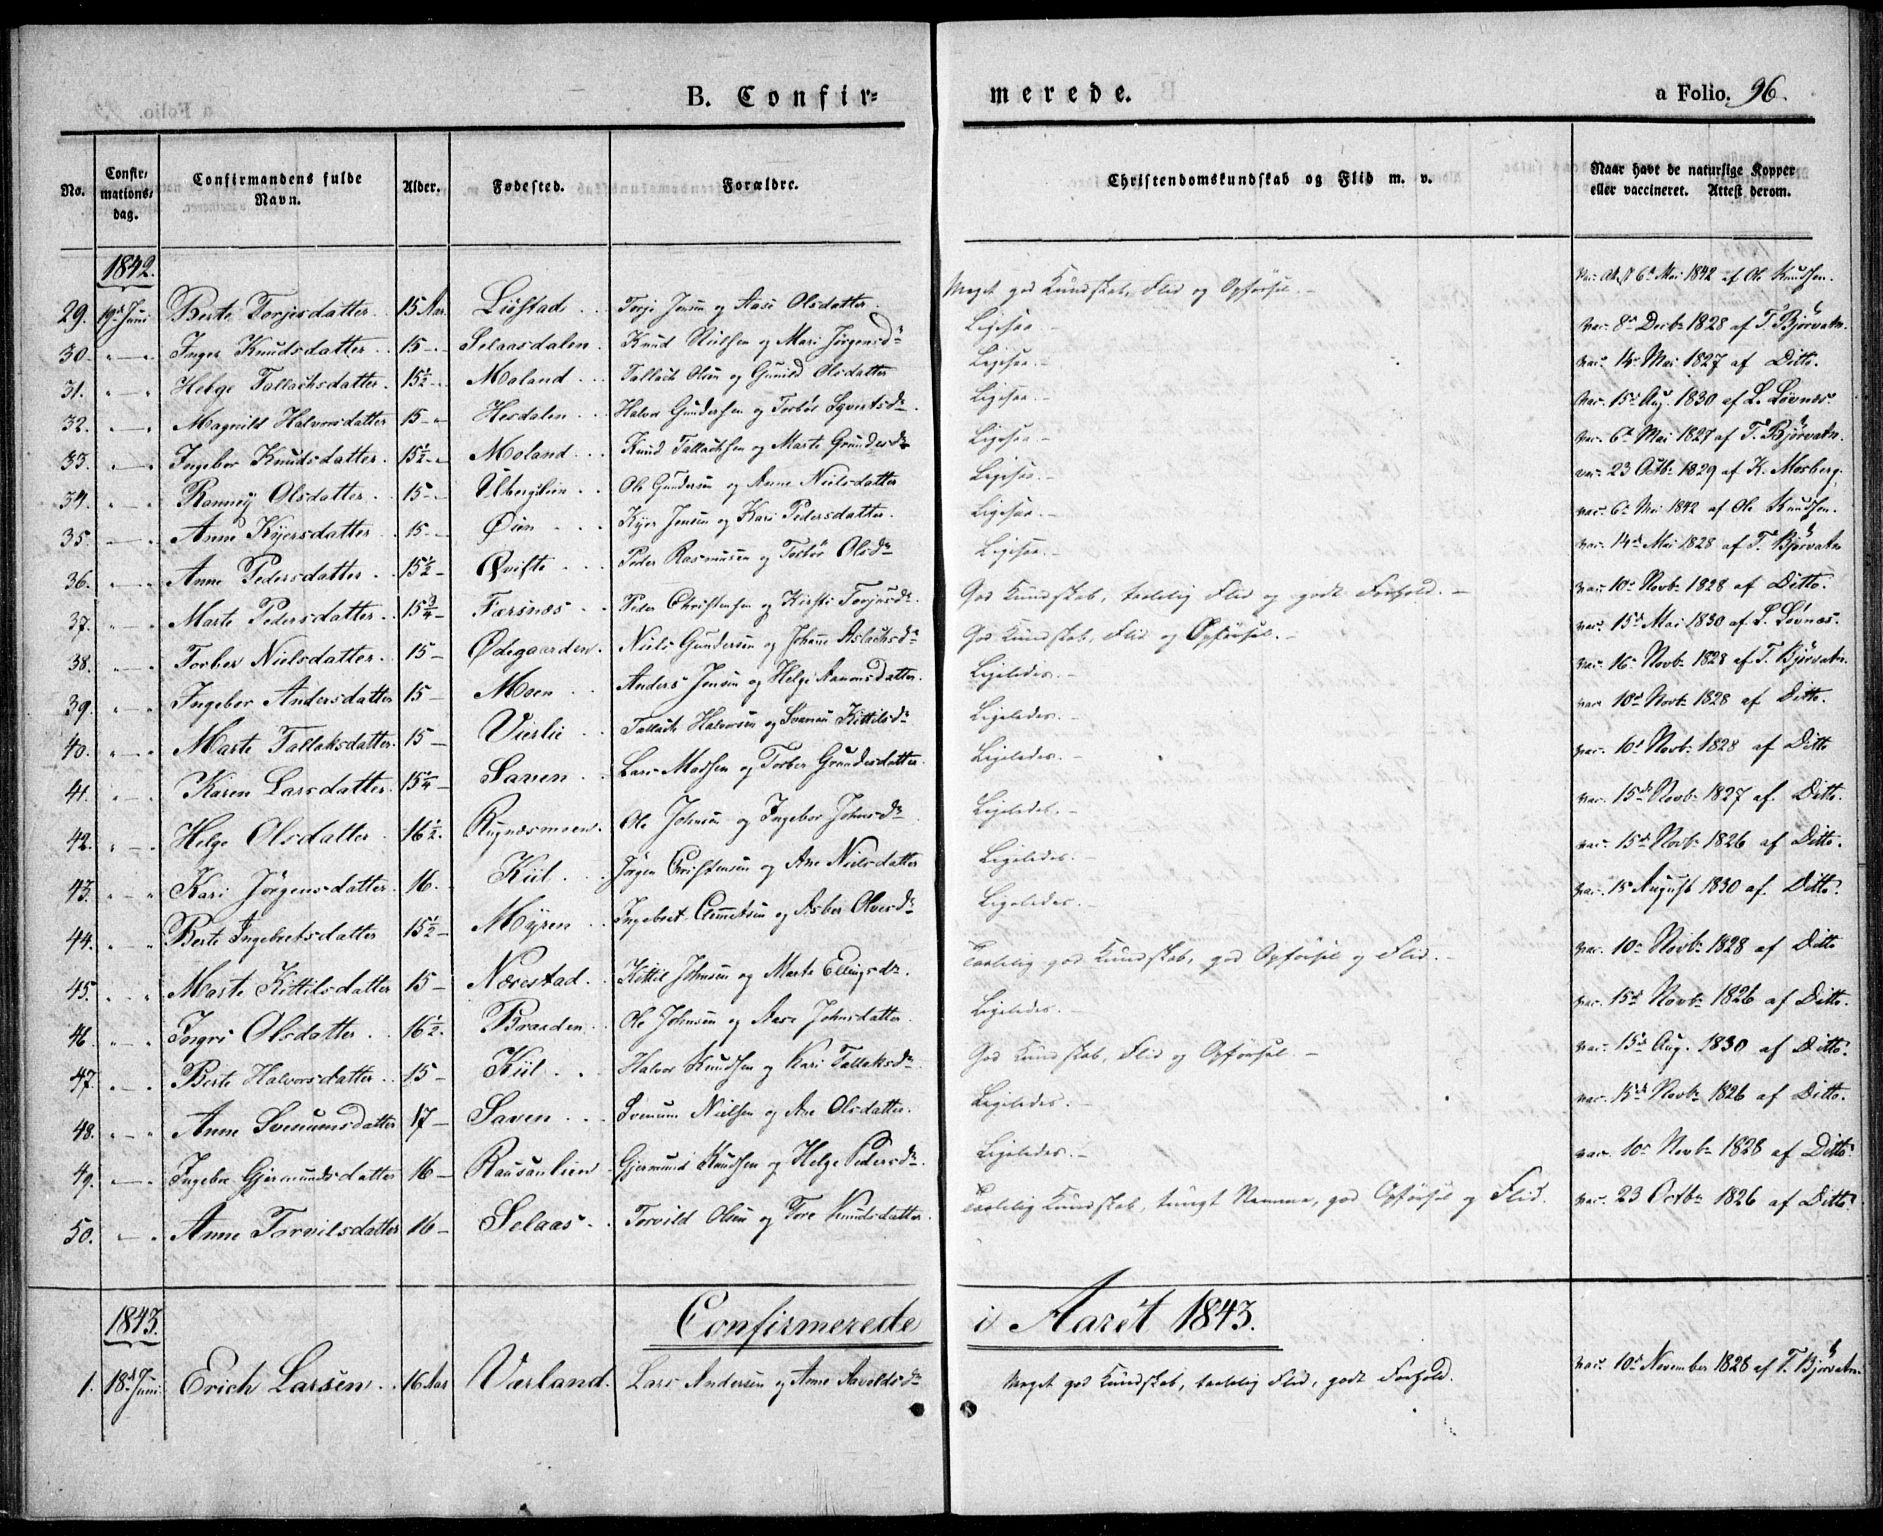 B. Confirmerede. a Folio. 96.
No. Confirmationsdag. Confirmandens fulde Navn. Alder. Fødested. Forældre. Christendomskundskab og Flid m. v. Naar havt de naturlige Kopper eller vaccineret. Attest derom.
1842.
29. 19d Juni Berte Torjesdatter. 15 Aar. Liøstad Torje Jensen og Aase Olsdatter. Meget god Kundskab, Flid og Opførsel. Vac. Att. 6te Mai 1842 af Ole Knudsen.
30. " — " Inger Knudsdatter. 15 - Selaasdalen. Knud Nielsen og Mari Jørgensdr Ligesaa. vac. 8de Decbr 1828 af T. Bjørvatn.
31. " — " Helge Tallachsdatter. 15½ - Moland Tallach Olsen og Gunild Olsdatter Ligesaa. vac. 14 Mai 1827 af Ditto.
32. " — " Magnild Halvorsdatter 15 - Herdalen Halvor Gundersen og Torbør Sgvertsdr. Ligesaa. vac. 15d Aug. 1830 af L. Løvnes.
33. " — " Ingebor Knudsdatter. 15½ - Moland Knud Tallachsen og Marte Grundesdr Ligesaa. vac. 6te Mai 1827 af T. Bjørvatn.
34. " — " Ranneÿ Olsdatter. 15 - Ubergslien Ole Gundersen og Anne Nielsdatter Ligesaa. vac. 23 Octbr 1829 af K. Mosberg.
35. " — " Anne Kyersdatter 15 - Øien Kyer Jensen og Kari Pedersdatter. Ligesaa. vac. 6te Mai 1842 af Ole Knudsen.
36. " — " Anne Pedersdatter. 15½ - Qvifte Peder Rasmusen og Torbør Olsdr Ligesaa. vac. 14d Mai 1828 af T. Bjørvatn
37. " — " Marte Pedersdatter. 15¾ - Færsnæs Peder Christensen og Kirsti Torjusdr. God Kundskab, taalelig Flid og godt Forhold. vac. 10de Novbr 1828 af Ditto.
38. " — " Torber Nielsdatter. 15 - Ødegaarden. Niels Gundersen og Johanne Aslachsdr God Kundskab, Flid og Opførsel. vac. 15d Mai 1830 af L. Løvnæs.
39. " — " Ingebor Andersdatter 15 - Moen Anders Jensen og Helge Aanonsdatter. Ligeledes. vac. 16 Novbr 1828 af T. Bjørvatn.
40. " — " Marte Tallaksdatter. 15 - Vierlie Tallack Halvorsen og Svanau Kittilsdr Ligeledes. vac. 10d Novbr 1828 af Ditto.
41. " — " Karen Larsdatter. 15¼ - Saven Lars Madsen og Torber Grundesdatter. Ligeledes. vac. 10d Novbr 1828 af Ditto
42. " — " Helge Olsdatter 16½. Rugnæsmoen. Ole Johnsen og Ingebor Johnsdr Ligeledes. vac. 15de Novbr 1827 af. Ditto.
43. " — " Kari Jørgensdatter. 16. Kiil Jørgen Christensen og Ane Nielsdatter Ligeledes. vac. 15d Novbr 1826 af Ditto.
44. " — " Berte Ingebretsdatter 15½ - Mÿren Ingebret Clemetsen og Asber Olvesdr Ligeledes. vac. 15 August 1830 af. Ditto.
45. " — " Marte Kittilsdatter 15 - Nærestad Kittil Johnsen og Marte Ellingsdr. Taalelig god Kundskab, god Opførsel og Flid. vac. 10de Novbr 1828 af Ditto
46. " — " Ingri Olsdatter 16½. Braaden Ole Johnsen og Aase Johnsdatter. Ligeledes. vac. 15d Novbr 1826 af Ditto.
47. " — " Berte Halvorsdatter 15 - Kiil Halvor Knudsen og Kari Tallaksdr. God Kundskab, Flid og Opførsel. vac. 15d Aug. 1830 af Ditto.
48. " — " Anne Svenumsdatter 17 - Saven Svenum Nielsen og Ane Olsdatter. Ligeledes. vac. 15de Novbr 1826 af Ditto.
49. " — " Ingebor Gjermundsdatter 16 - Gjermund Knudsen og Helge Pedersdr. Ligeledes. vac. 10de Novbr 1828 af Ditto.
50. " — " Anne Torvilsdatter 16 - Selaas Torvild Olsen og Tore Knudsdatter. Taalelig Kundskab, tungt Nemme, god Opførsel og Flid. vac. 23 Octbr 1826 af Ditto.
1843. Confirmerede i Aaret 1843.
1. 18d Juni Erich Larsen 16 Aar Varland. Lars Andersen og Anne Aavoldsdr Meget god Kundskab, taalelig Flid, godt Forhold. vac. 10d November 1828 af T. Bjørvatn.